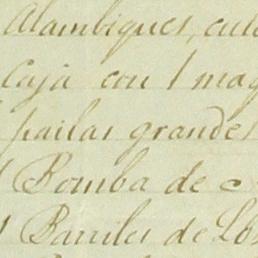 Alambiques, cule
Caja con 1 maq
pailas grandes
1 Bomba de c
1 Barriles de Los